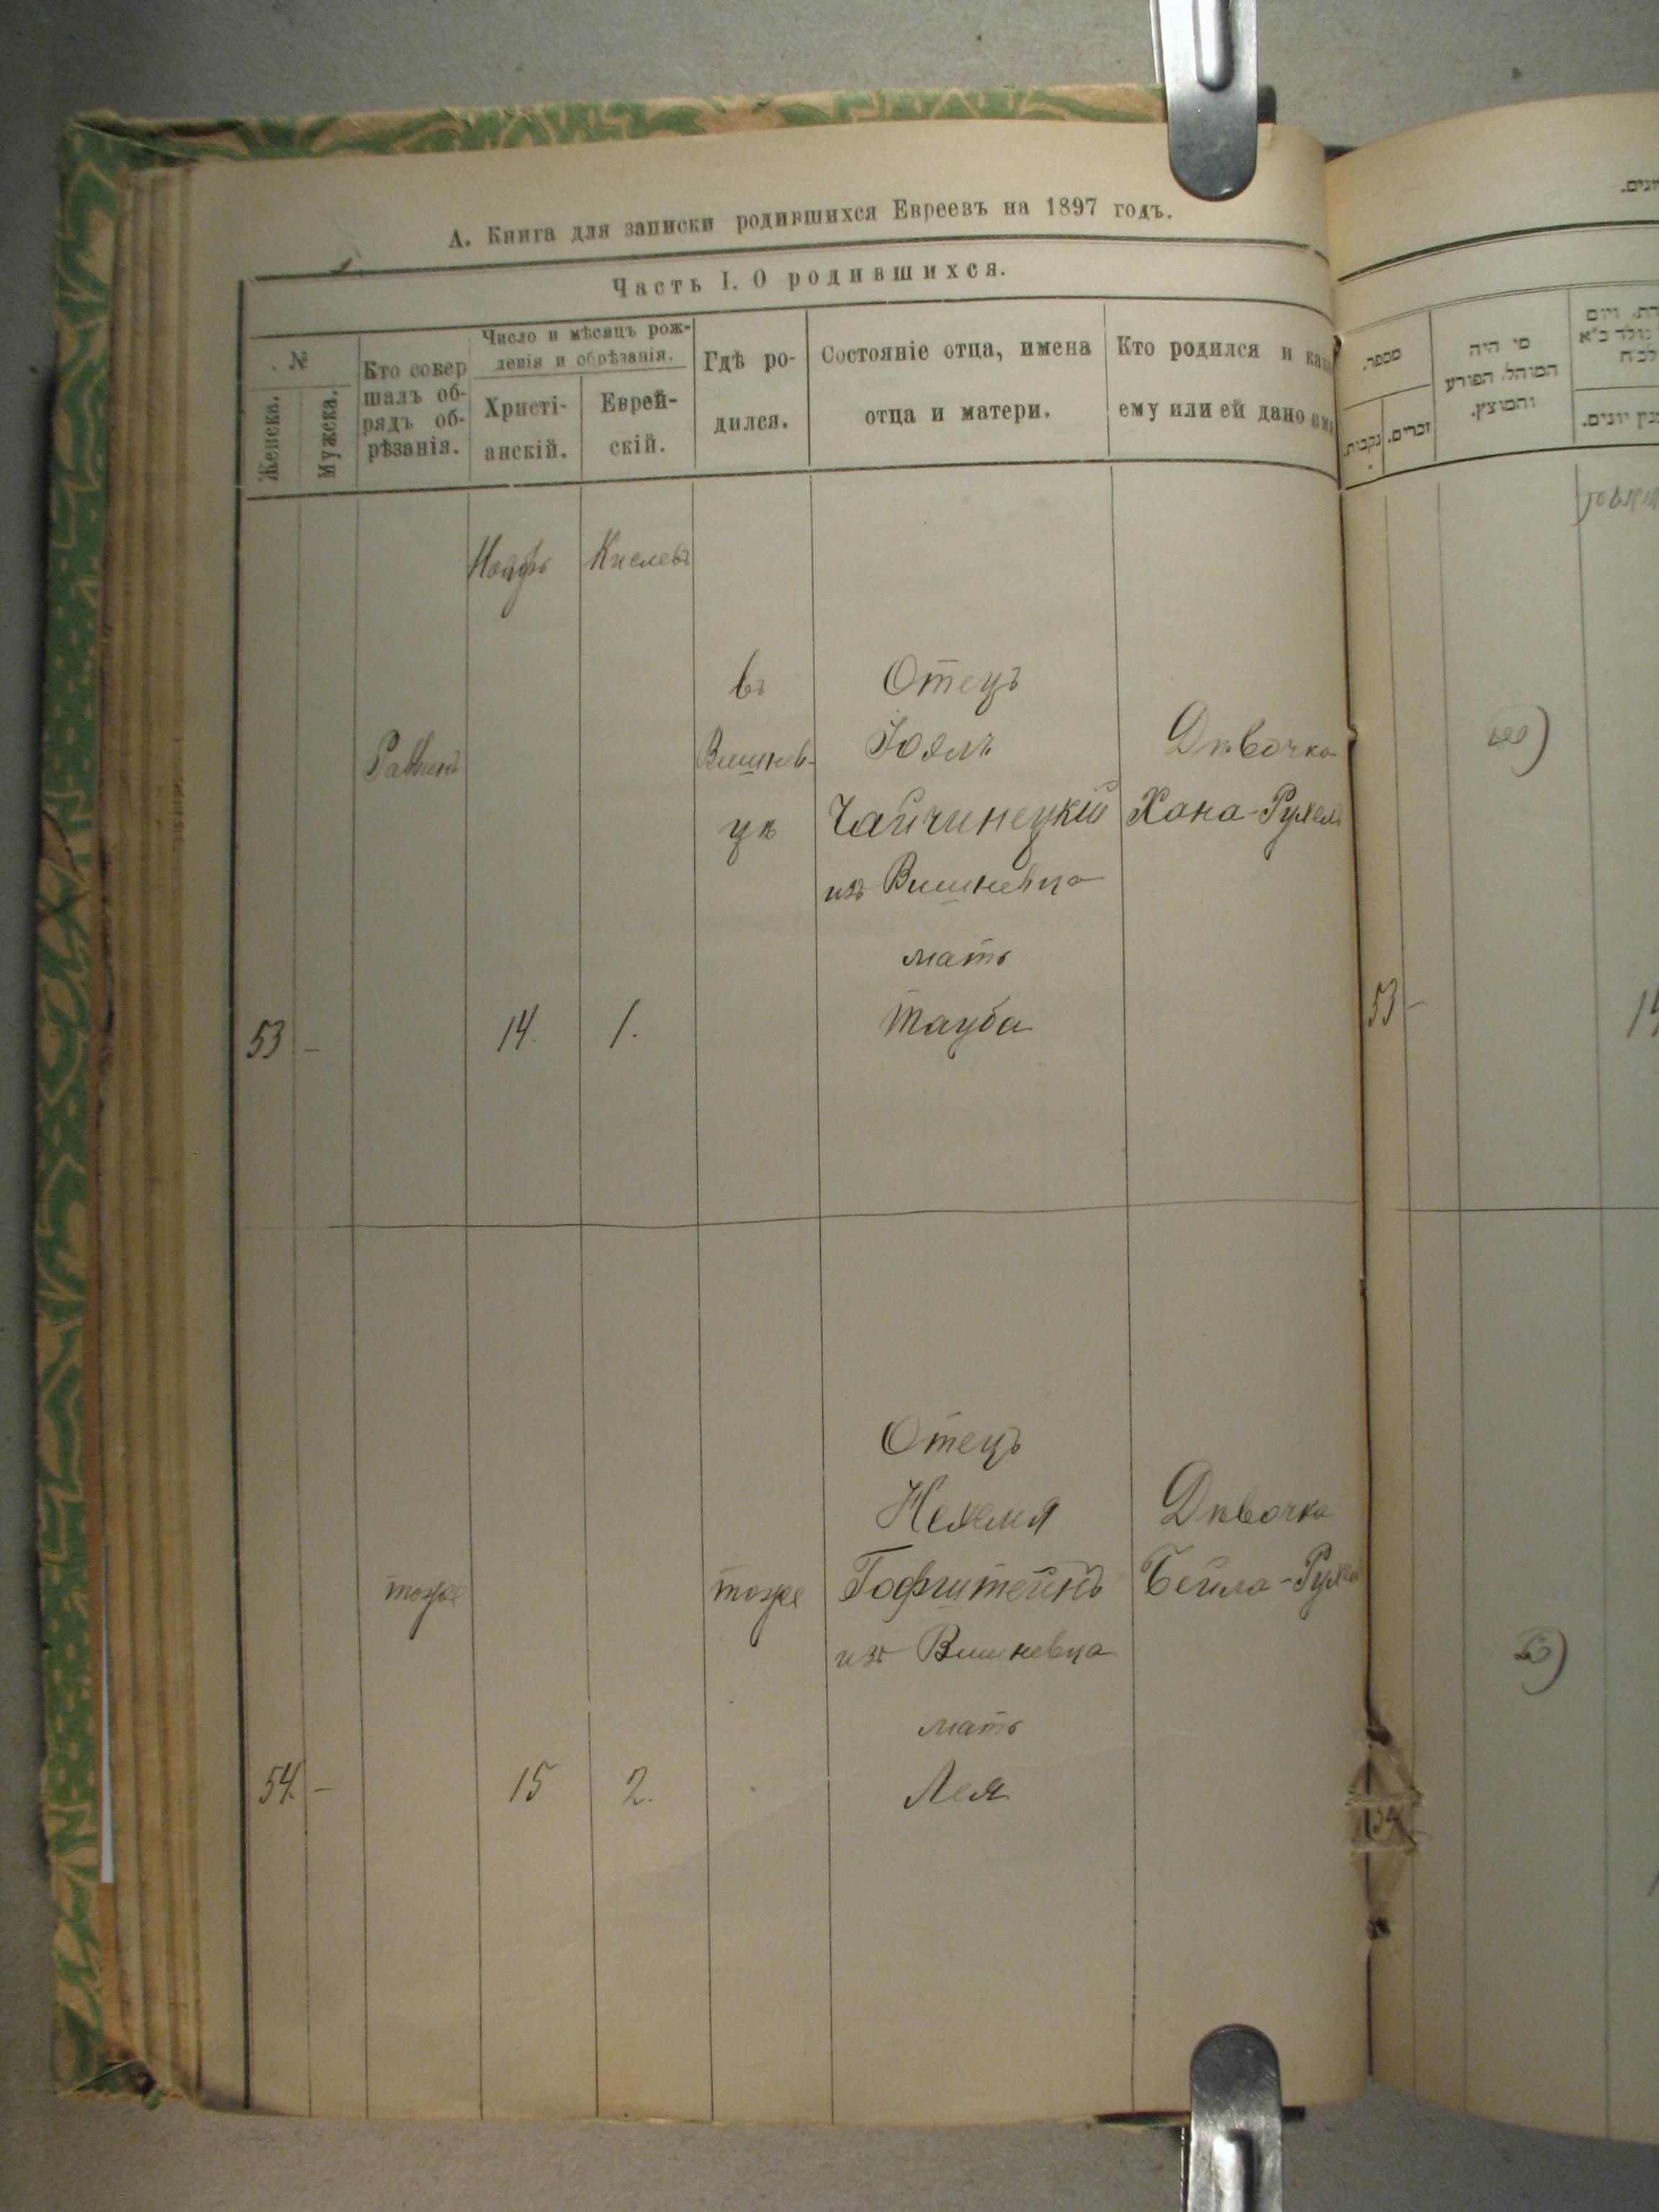 А. Книга для записки родившихся Евреевъ на 1897 годъ.
Часть I. О родившихся.
№
Женска.
Мужска.
Кто совер
шалъ об-
рядъ об-
рѣзанія.
Число и мѣсяцъ рож-
денія и обрѣзанія.
Христі-
анскій.
Еврей-
скій.
Гдѣ ро-
дился.
Состояніе отца, имена
отца и матери.
Кто родился и
ему или ей дано
Ноябрь
Кислевъ
53
-
Раввинъ
14.
1.
въ
Вишнев-
цѣ
Отецъ
Іоэль
Чайчинецкій
изъ Вишневца
мать
Тауба
Дѣвочка
Хана-Рухель
54.
-
тоже
15
2.
тоже
Отецъ
Нехемія
Гофштейнъ
изъ Вишневца
мать
Лея
Дѣвочка
Бейла-
מספר.
נקבות.
זכרים.
מי היה
המוהל, הפורע
והמוצץ.
53 -